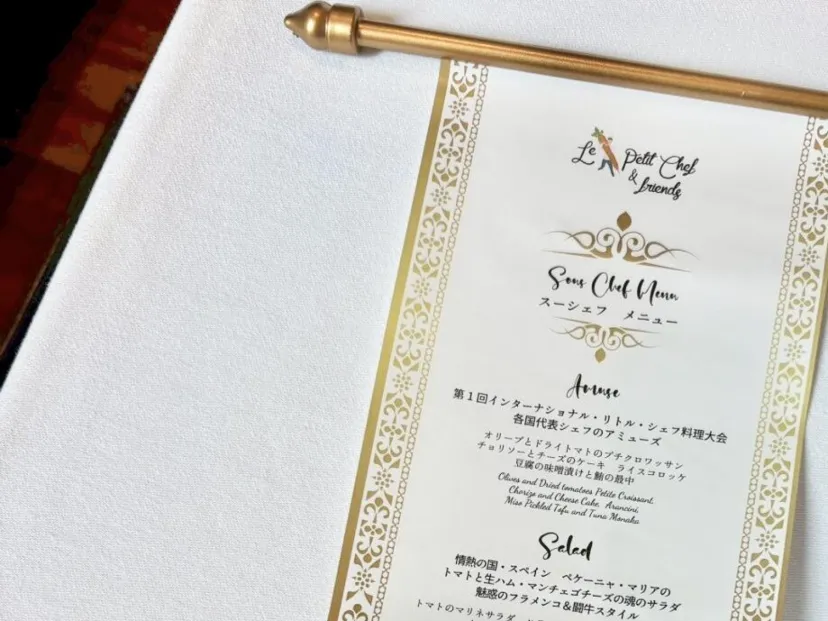 Le Petit Chef
& friends
Sous Chef Menu
スーシェフ メニュー
Amuse
第1回インターナショナル・リトル・シェフ料理大会
各国代表シェフのアミューズ
オリーブとドライトマトのプチクロワッサン
チョリソーとチーズのケーキ ライスコロッケ
豆腐の味噌漬けと鮪の最中
Olives and Dried tomatoes Petite Croissant,
Chorizo and Cheese Cake, Arancini,
Miso Pickled Tofu and Tuna Monaka
Salad
情熱の国・スペイン ペケーニャ・マリアの
トマトと生ハム・マンチェゴチーズの魂のサラダ
魅惑のフラメンコ＆闘牛スタイル
トマトのマリネサラダ